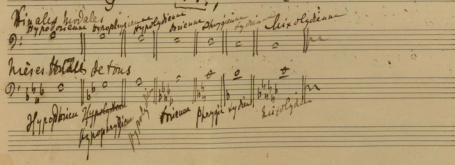 Finales modales
Hypodorienne Hypophrygienne Hypolydienne Dorienne Phrygienne Lydienne Mixolydienne
Mèses de tons
Hypodorien Hypophrygien Hypolydien Dorien Phrygien Lydien Mixolydien